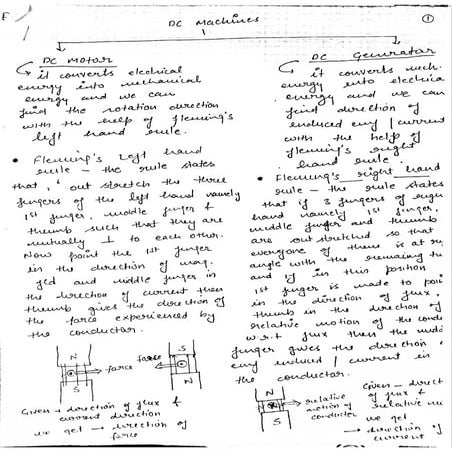 DC Machines
1
DC Motor
it converts electrical
energy into mechanical
energy and we can
find the rotation direction
with the help of fleming's
left hand rule.
• Fleming's Left hand
rule - the rule states
that, out stretch the three
fingers of the left hand namely
1st finger, middle finger &
thumb such that they are
mutually ⊥ to each other.
Now point the 1st finger
in the direction of mag.
field and middle finger in
the direction of current then
thumb gives the direction of
the force experienced by
the conductor.
N
force
S
S
force
N
Given → direction of flux &
current direction
we get → direction of
force
DC Generator
it converts mech.
energy into electrica
energy and we can
find direction of
induced emf / current
with the help of
fleming's right
hand rule.
• Fleming's right hand
rule - the rule states
that if 3 fingers of righ
hand namely 1st finger,
middle finger and thumb
are outstretched so that
everyone of them is at
angle with the remaining
and if in this position
1st finger is made to poi
in the direction of flux,
thumb in the direction of
relative motion of the cond
w.r.t flux then the midd
finger gives the direction
emf induced / current in
the conductor.
S
N
relative
motion of
conductor
Given - direct
of flux &
relative
we get
→ direction of
current